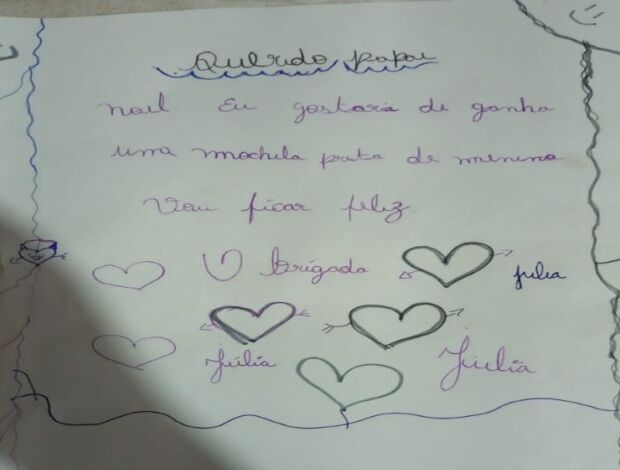 Querido papai
noel Eu gostaria de ganha
uma mochila prata de menina
Vou ficar feliz
Obrigada julia
Júlia Júlia